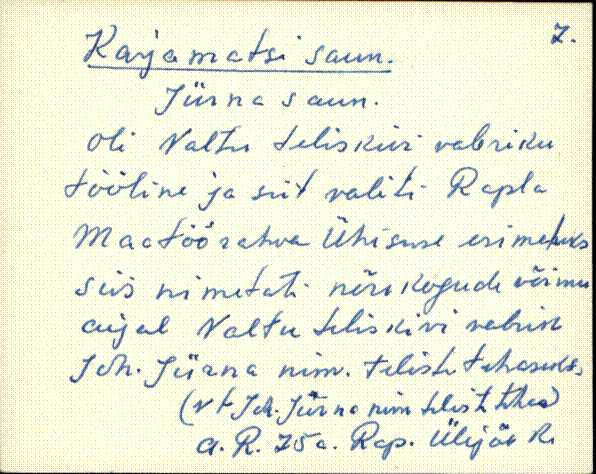 7.
Karjamatsi saun.
Jürna saun.
oli Valtu telliskivi vabriku
tööline ja siit valiti Rapla
Maatöörahva Ühisuse esimeheks
siis nimetati nõukogude võimu
aijal Valtu teliskivi vabrik
Joh. Jürna nim. telisetehaseks.
(vt Joh. Jürna nim
A. R. 75 a. Rap.